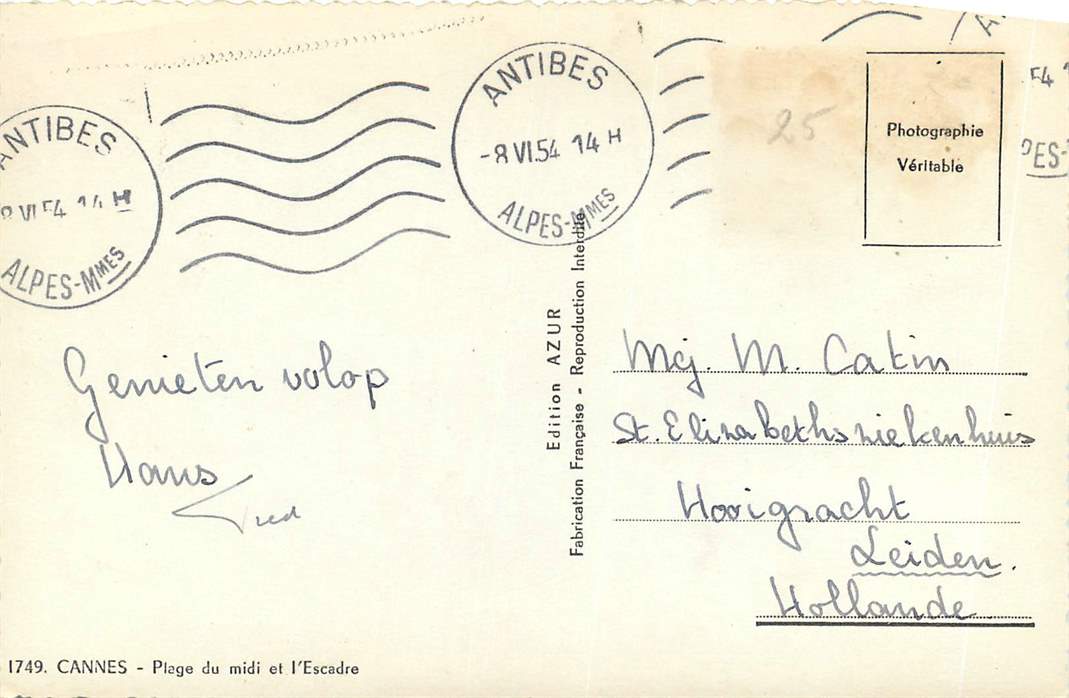 ANTIBES
8 VI 54 14 H
ALPES-MMES
ANTIBES
-8 VI.54 14 H
ALPES-MMES
25
Photographie
Véritable
54 1
PES-
Genieten volop
Hans
Fred
Edition AZUR
Fabrication Française - Reproduction Interdite
Mej. M. Catin
St. Elizabethsziekenhuis
Hooigracht
Leiden.
Hollande
1749. CANNES - Plage du midi et l'Escadre